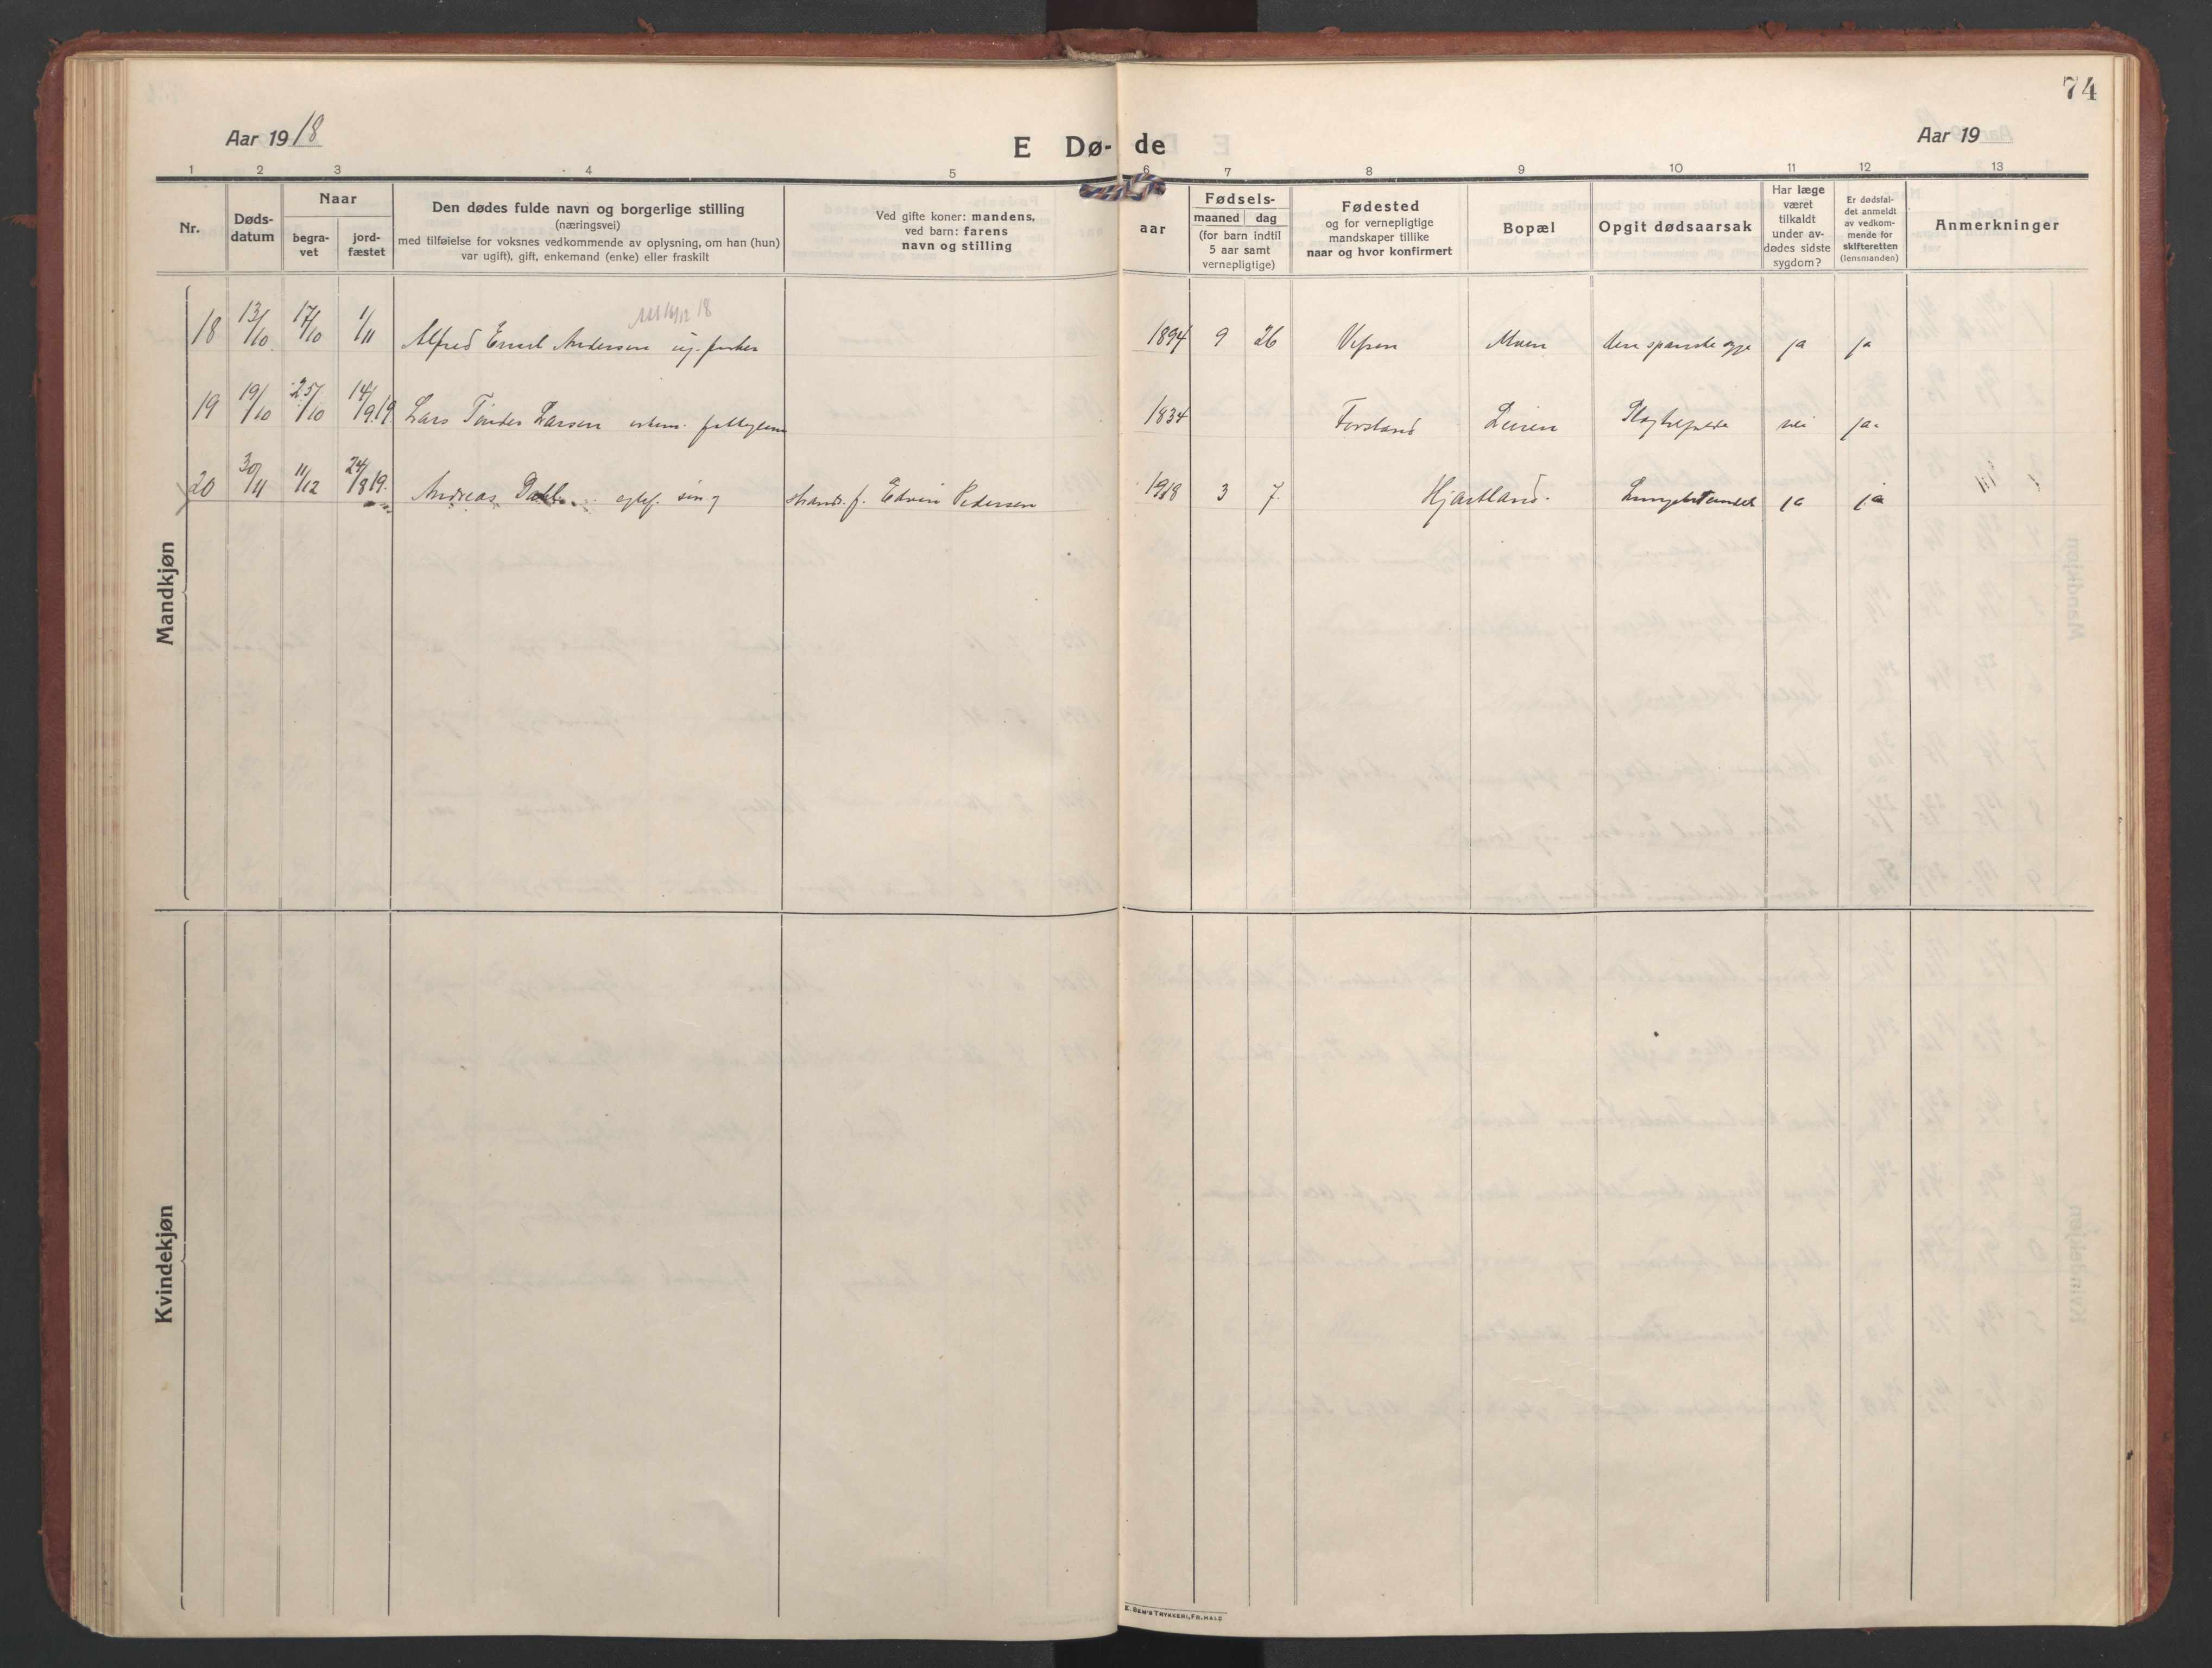 74
Aar 1918
E Dø-de
Aar 19
1 2 3 4 5 6 7 8 9 10 11 12 13
Nr.
Døds-
datum
Naar
begra-
vet
jord-
fæstet
Den dødes fulde navn og borgerlige stilling
(næringsvei)
med tilføielse for voksnes vedkommende av oplysning, om han (hun)
var ugift), gift, enkemand (enke) eller fraskilt
Ved gifte koner: mandens,
ved barn: farens
navn og stilling
aar
Fødsels-
maaned dag
(for barn indtil
5 aar samt
vernepligtige)
Fødested
og for vernepligtige
mandskaper tillike
naar og hvor konfirmert
Bopæl
Opgit dødsaarsak
Har læge
været
tilkaldt
under av-
dødes sidste
sygdom?
Er dødsfal-
det anmeldt
av vedkom-
mende for
skifteretten
(lensmanden)
Anmerkninger
Mandkjøn
18 13/10 17/10 1/11 Alfred Emil Andersen ug. fisker 1894 9 26 Vefsen Moen den spanske syge ja ja
19 19/10 25/10 14/9 19 Lars Tønder Larsen enkem. 1834 Forsland Leiren nei ja
20 30/11 11/12 24/8 19. Andreas egtef. søn af strands. f. Edvin Pedersen 1918 3 7. Hjartland. ja ja
Kvindekjøn
E. SEM'S TRYKKERI, FR.HALD